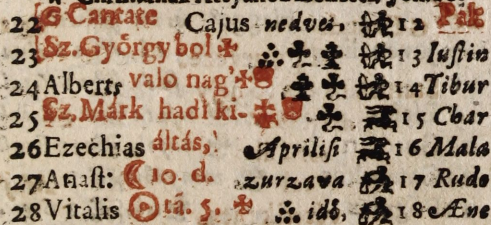 22 G Cantate Cajus nedves, 12 Pal
23 Sz. György bol 13 Iustin
24 Albert9 valo nag' 14 Tibur
25 Sz. Márk hadi ki- 15 Char
26 Ezechias áltás, Aprilisi 16 Mala
27 Anast: ☾ 10. d. zurzava 17 Rudo
28 Vitalis tá. 5. idö, 18 Æne